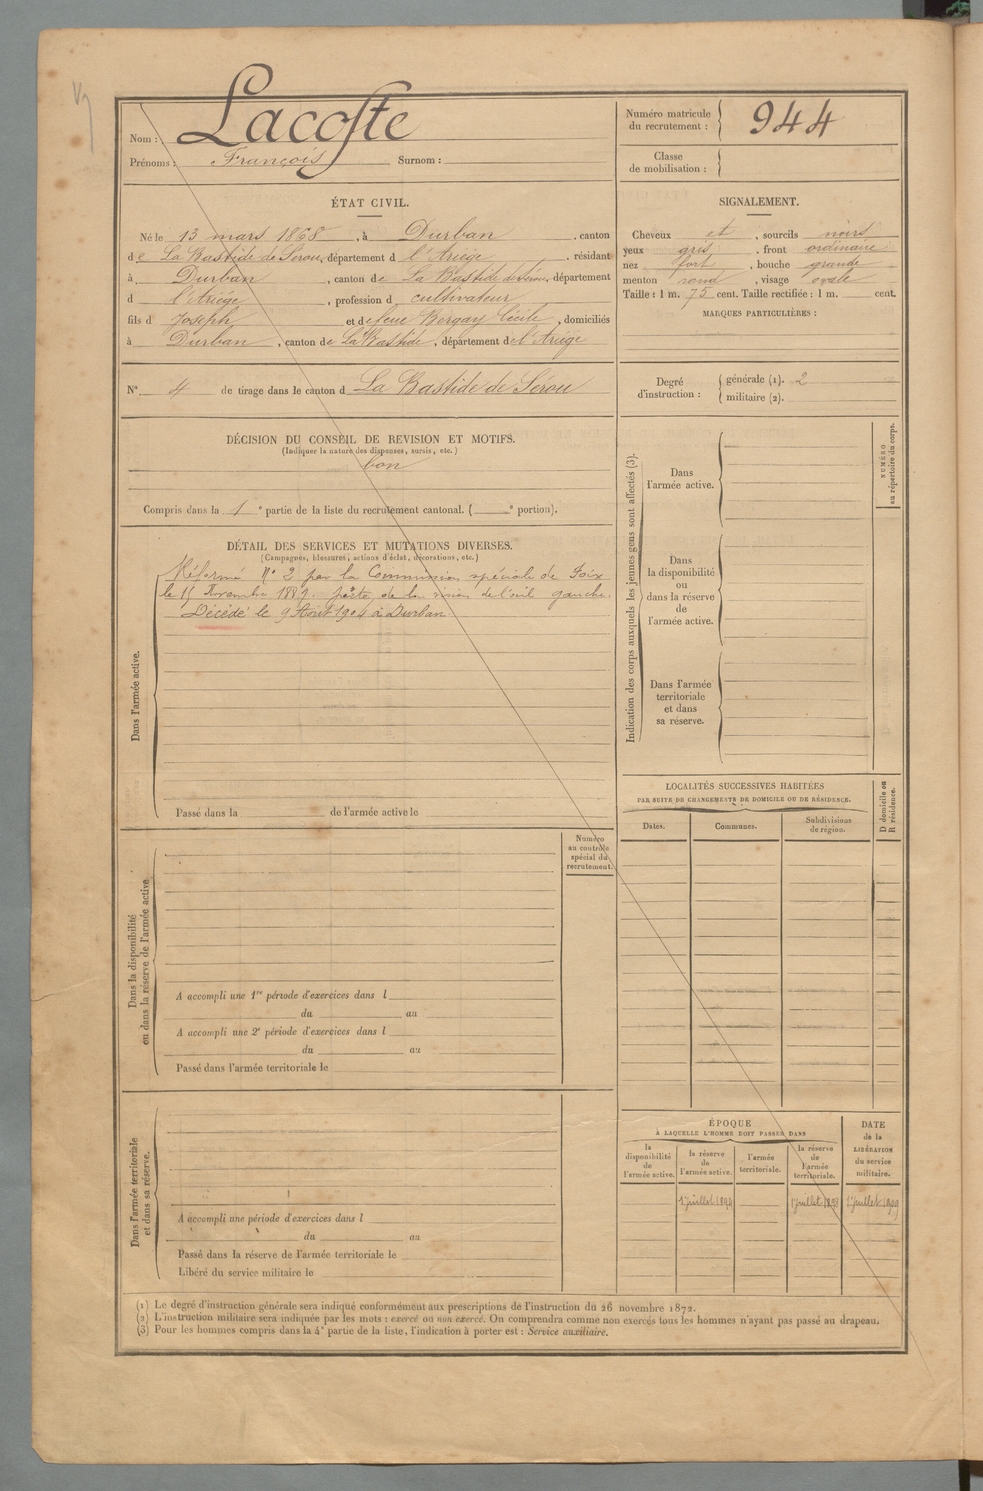 Nom : Lacoste
Prénoms : François Surnom :
Numéro matricule
du recrutement : 944
Classe
de mobilisation :
ÉTAT CIVIL.
Né le 13 mars 1868, à Durban, canton
de La Bastide de Sérou, département d l'Ariège, résidant
à Durban, canton de La Bastide de Sérou, département
d l'Ariège, profession d cultivateur
fils d Joseph et de feue Bergay Cécile, domiciliés
à Durban, canton de La Bastide, département de l'Ariège
SIGNALEMENT.
Cheveux et, sourcils noirs
yeux gris, front ordinaire
nez fort, bouche grande
menton rond, visage ovale
Taille : 1 m. 75 cent. Taille rectifiée : 1 m. cent.
MARQUES PARTICULIÈRES :
N° 4 de tirage dans le canton d La Bastide de Sérou
Degré
d'instruction :
générale (1). 2
militaire (2).
DÉCISION DU CONSEIL DE REVISION ET MOTIFS.
(Indiquer la nature des dispenses, sursis, etc.)
bon
Compris dans la 1e partie de la liste du recrutement cantonal. ( e portion).
DÉTAIL DES SERVICES ET MUTATIONS DIVERSES.
(Campagnes, blessures, actions d'éclat, décorations, etc.)
Réformé N° 2 par la Commission spéciale de Foix
le 15 Novembre 1889. perte de la vision de l'œil gauche.
Décédé le 9 Août 1904 à Durban
Dans l'armée active.
Passé dans la de l'armée active le
Indication des corps auxquels les jeunes gens sont affectés (3).
Dans
l'armée active.
Dans
la disponibilité
ou
dans la réserve
de
l'armée active.
Dans l'armée
territoriale
et dans
sa réserve.
NUMÉRO
au répertoire du corps.
LOCALITÉS SUCCESSIVES HABITÉES
PAR SUITE DE CHANGEMENTS DE DOMICILE OU DE RÉSIDENCE.
Dates.
Communes.
Subdivisions
de région.
D domicile ou
R résidence.
Numéro
au contrôle
spécial du
recrutement.
Dans la disponibilité
ou dans la réserve de l'armée active
A accompli une 1re période d'exercices dans l
du au
A accompli une 2e période d'exercices dans l
du au
Passé dans l'armée territoriale le
Dans l'armée territoriale
et dans sa réserve.
A accompli une période d'exercices dans l
du au
Passé dans la réserve de l'armée territoriale le
Libéré du service militaire le
ÉPOQUE
À LAQUELLE L'HOMME DOIT PASSER DANS
la
disponibilité
de
l'armée active.
la réserve
de
l'armée active.
l'armée
territoriale.
la réserve
de
l'armée
territoriale.
DATE
de la
LIBÉRATION
du service
militaire.
1 juillet 1juillet 1juillet
(1) Le degré d'instruction générale sera indiqué conformément aux prescriptions de l'instruction du 26 novembre 1872.
(2) L'instruction militaire sera indiquée par les mots : exercé ou non exercé. On comprendra comme non exercés tous les hommes n'ayant pas passé au drapeau.
(3) Pour les hommes compris dans la 4e partie de la liste, l'indication à porter est : Service auxiliaire.